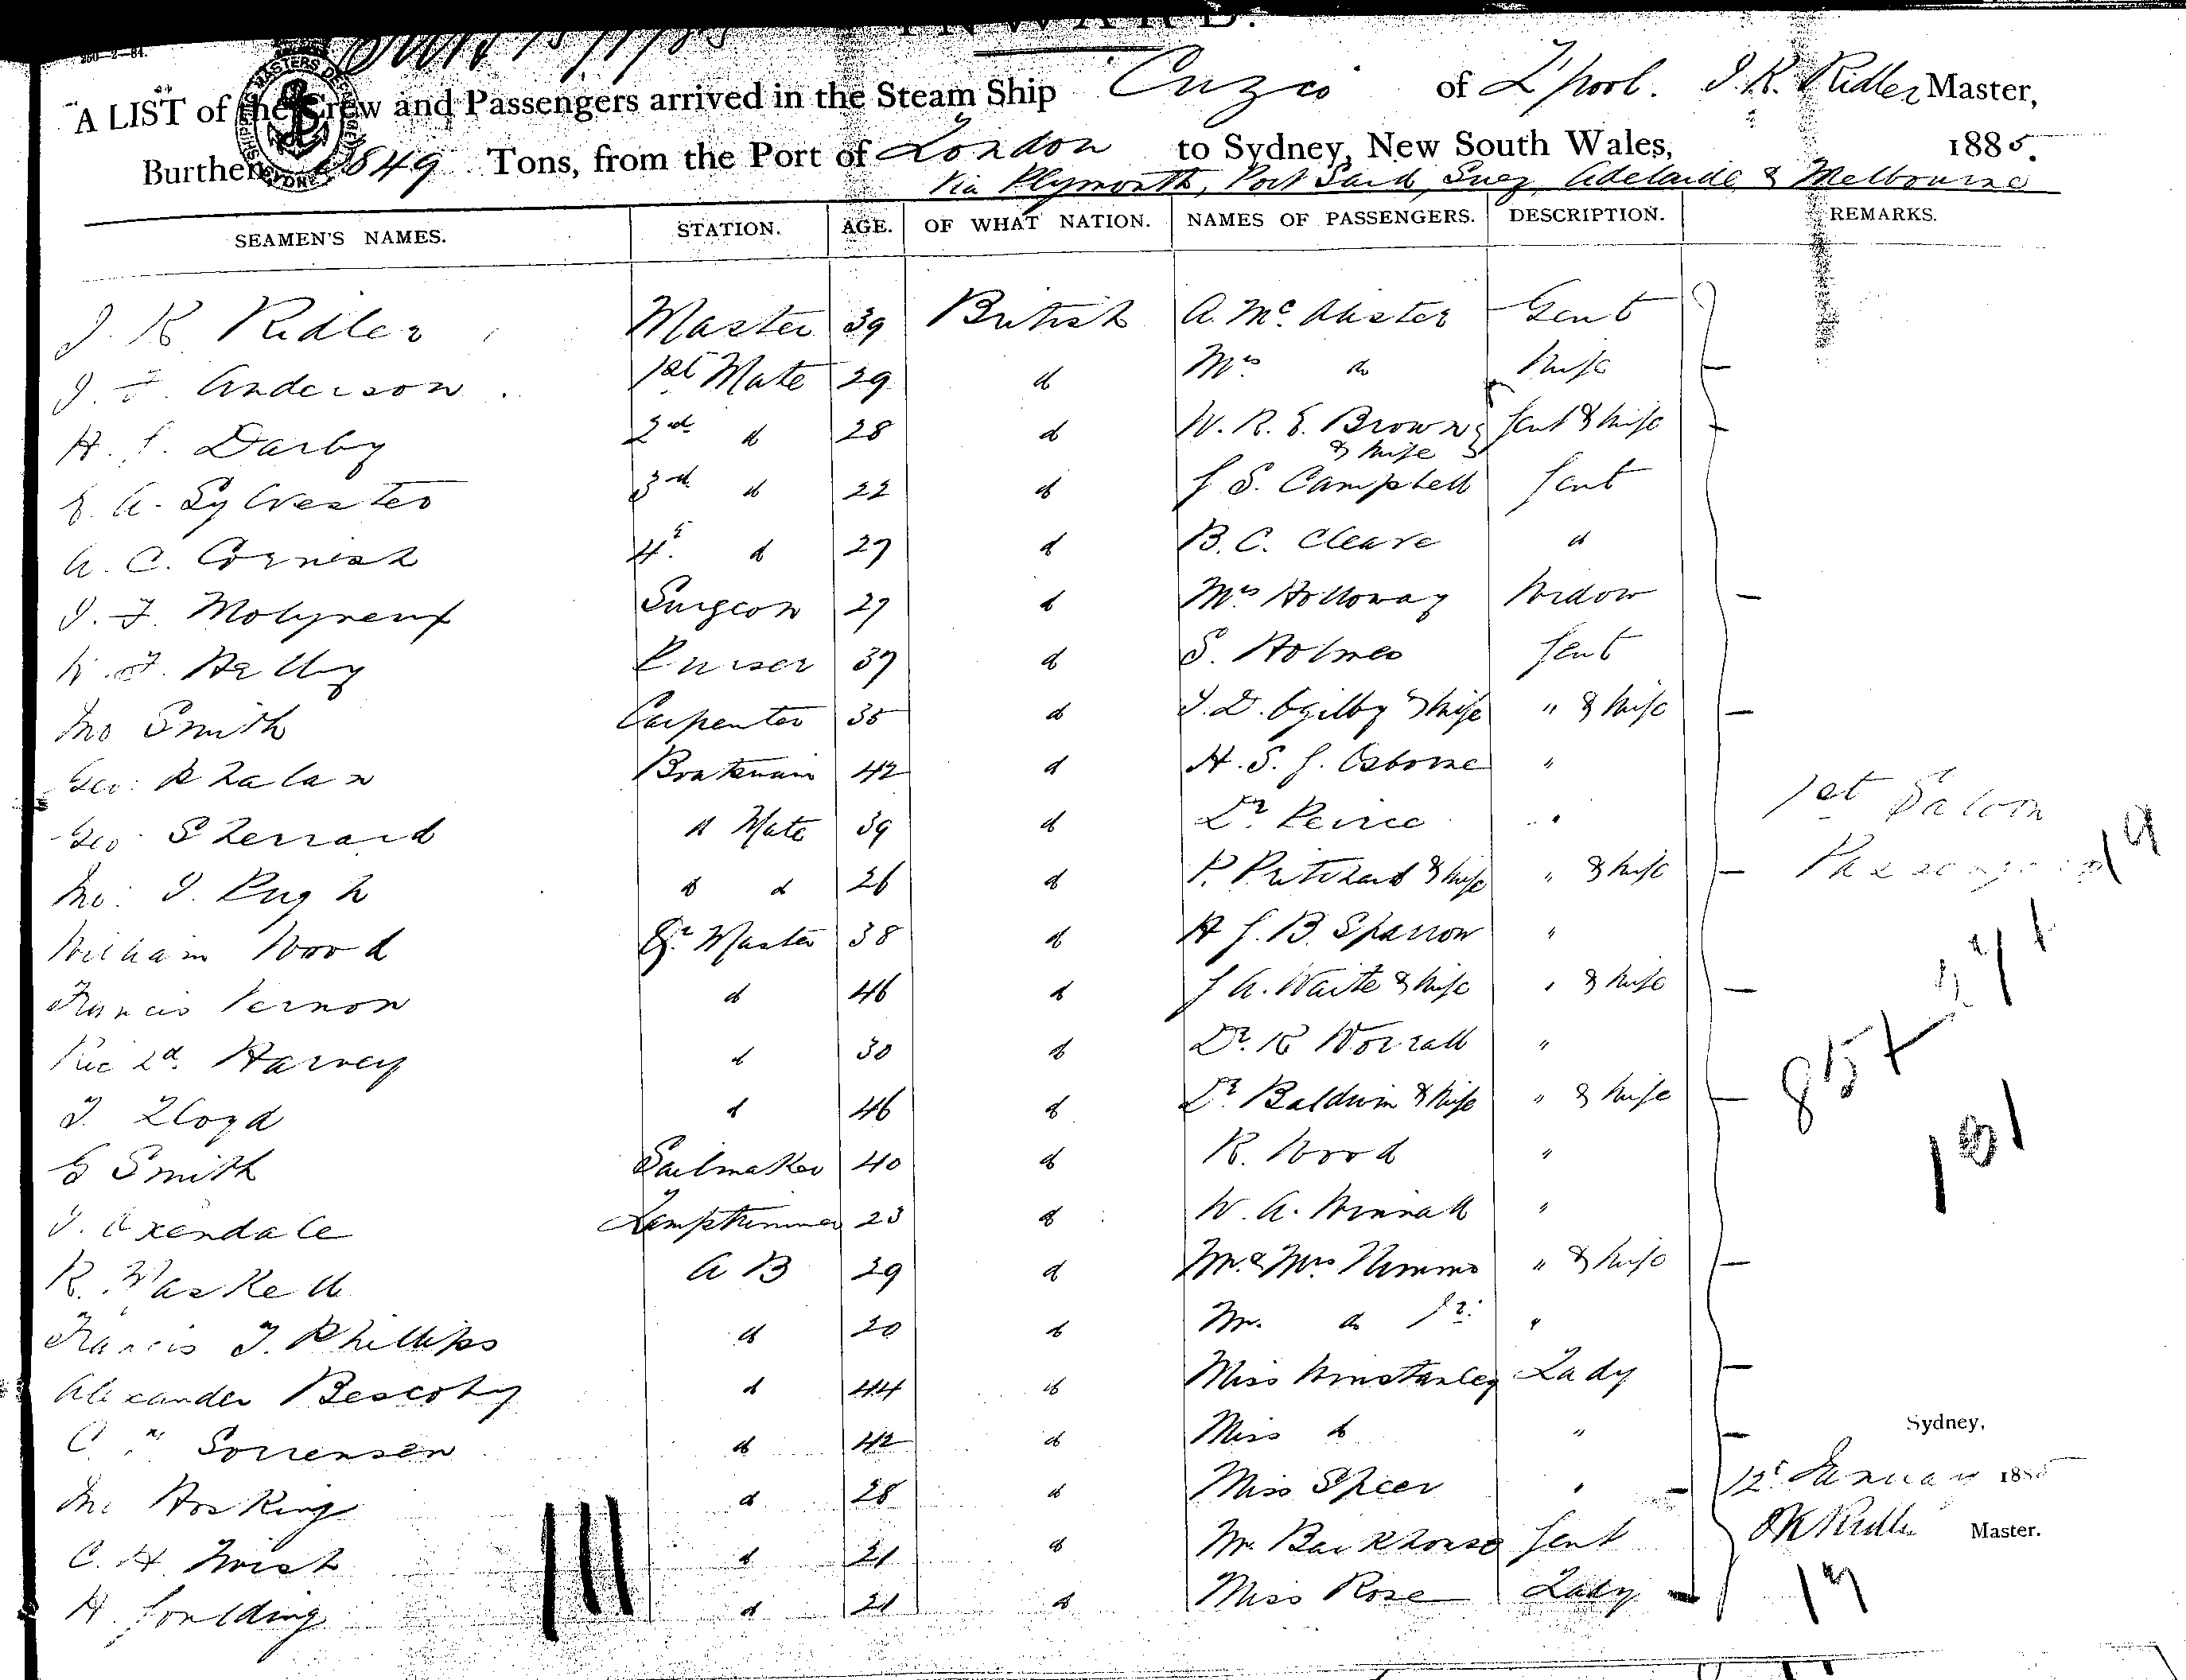 INWARD.
A LIST of the Crew and Passengers arrived in the Steam Ship Cuzco of L'pool. J. K. Ridler Master,
Burthen 3849 Tons, from the Port of London to Sydney, New South Wales, 1885.
Via Plymouth, Port Said, Suez, Adelaide & Melbourne
SEAMEN'S NAMES. STATION. AGE. OF WHAT NATION. NAMES OF PASSENGERS. DESCRIPTION. REMARKS.
J. K. Ridler Master 39 British A. Mc. Alister Gent
J. F. Anderson 1st Mate 29 d Mrs d Wife
H. G. Darby 2nd d 28 d W. R. E. Brown & Wife Gent & Wife
E. A. Sylvester 3rd d 22 d J S. Campbell Gent
A. C. Cornish 4t d 27 d B. C. Cleave d
J. F. Molyneux Surgeon 27 d Mrs Holloway Widow
W. F. Helby Purser 37 d S. Holmes Gent
Jno Smith Carpenter 35 d J. D. Ogilby & Wife " & Wife
Geo: Phalan Boatswain 42 d H. S. J. Osborne "
Geo Sherrard d Mate 39 d Dr Peirce "
Jno: J. Pugh d d 26 d P. Pritchard & Wife " & Wife
William Wood Qr Master 38 d H J. B. Sparrow "
1st Saloon
Passengers 19
Francis Vernon d 46 d J A. Waite & Wife " & Wife
Richd. Harvey d 30 d Dr. R Worrall "
T. Lloyd d 46 d Dr. Baldwin & Wife " & Wife
G Smith Sailmaker 40 d R. Wood "
J. Oxendale Lamptrimmer 23 d W. A. Winnall "
R. Maskell A B 29 d Mr & Mrs Nimmo " & Wife
Francis J. Phillips d 20 d Mr. d Jr. "
Alexander Bescoby d 44 d Miss Winstanley Lady
C. Sorrensen d 42 d Miss d "
Jno Hosking d 28 d Miss Speer "
C. H. Twist d 21 d Mr. Backhouse Gent
H. Goulding d 21 d Miss Rose Lady
Sydney,
12t January 1885
J K Ridler Master.